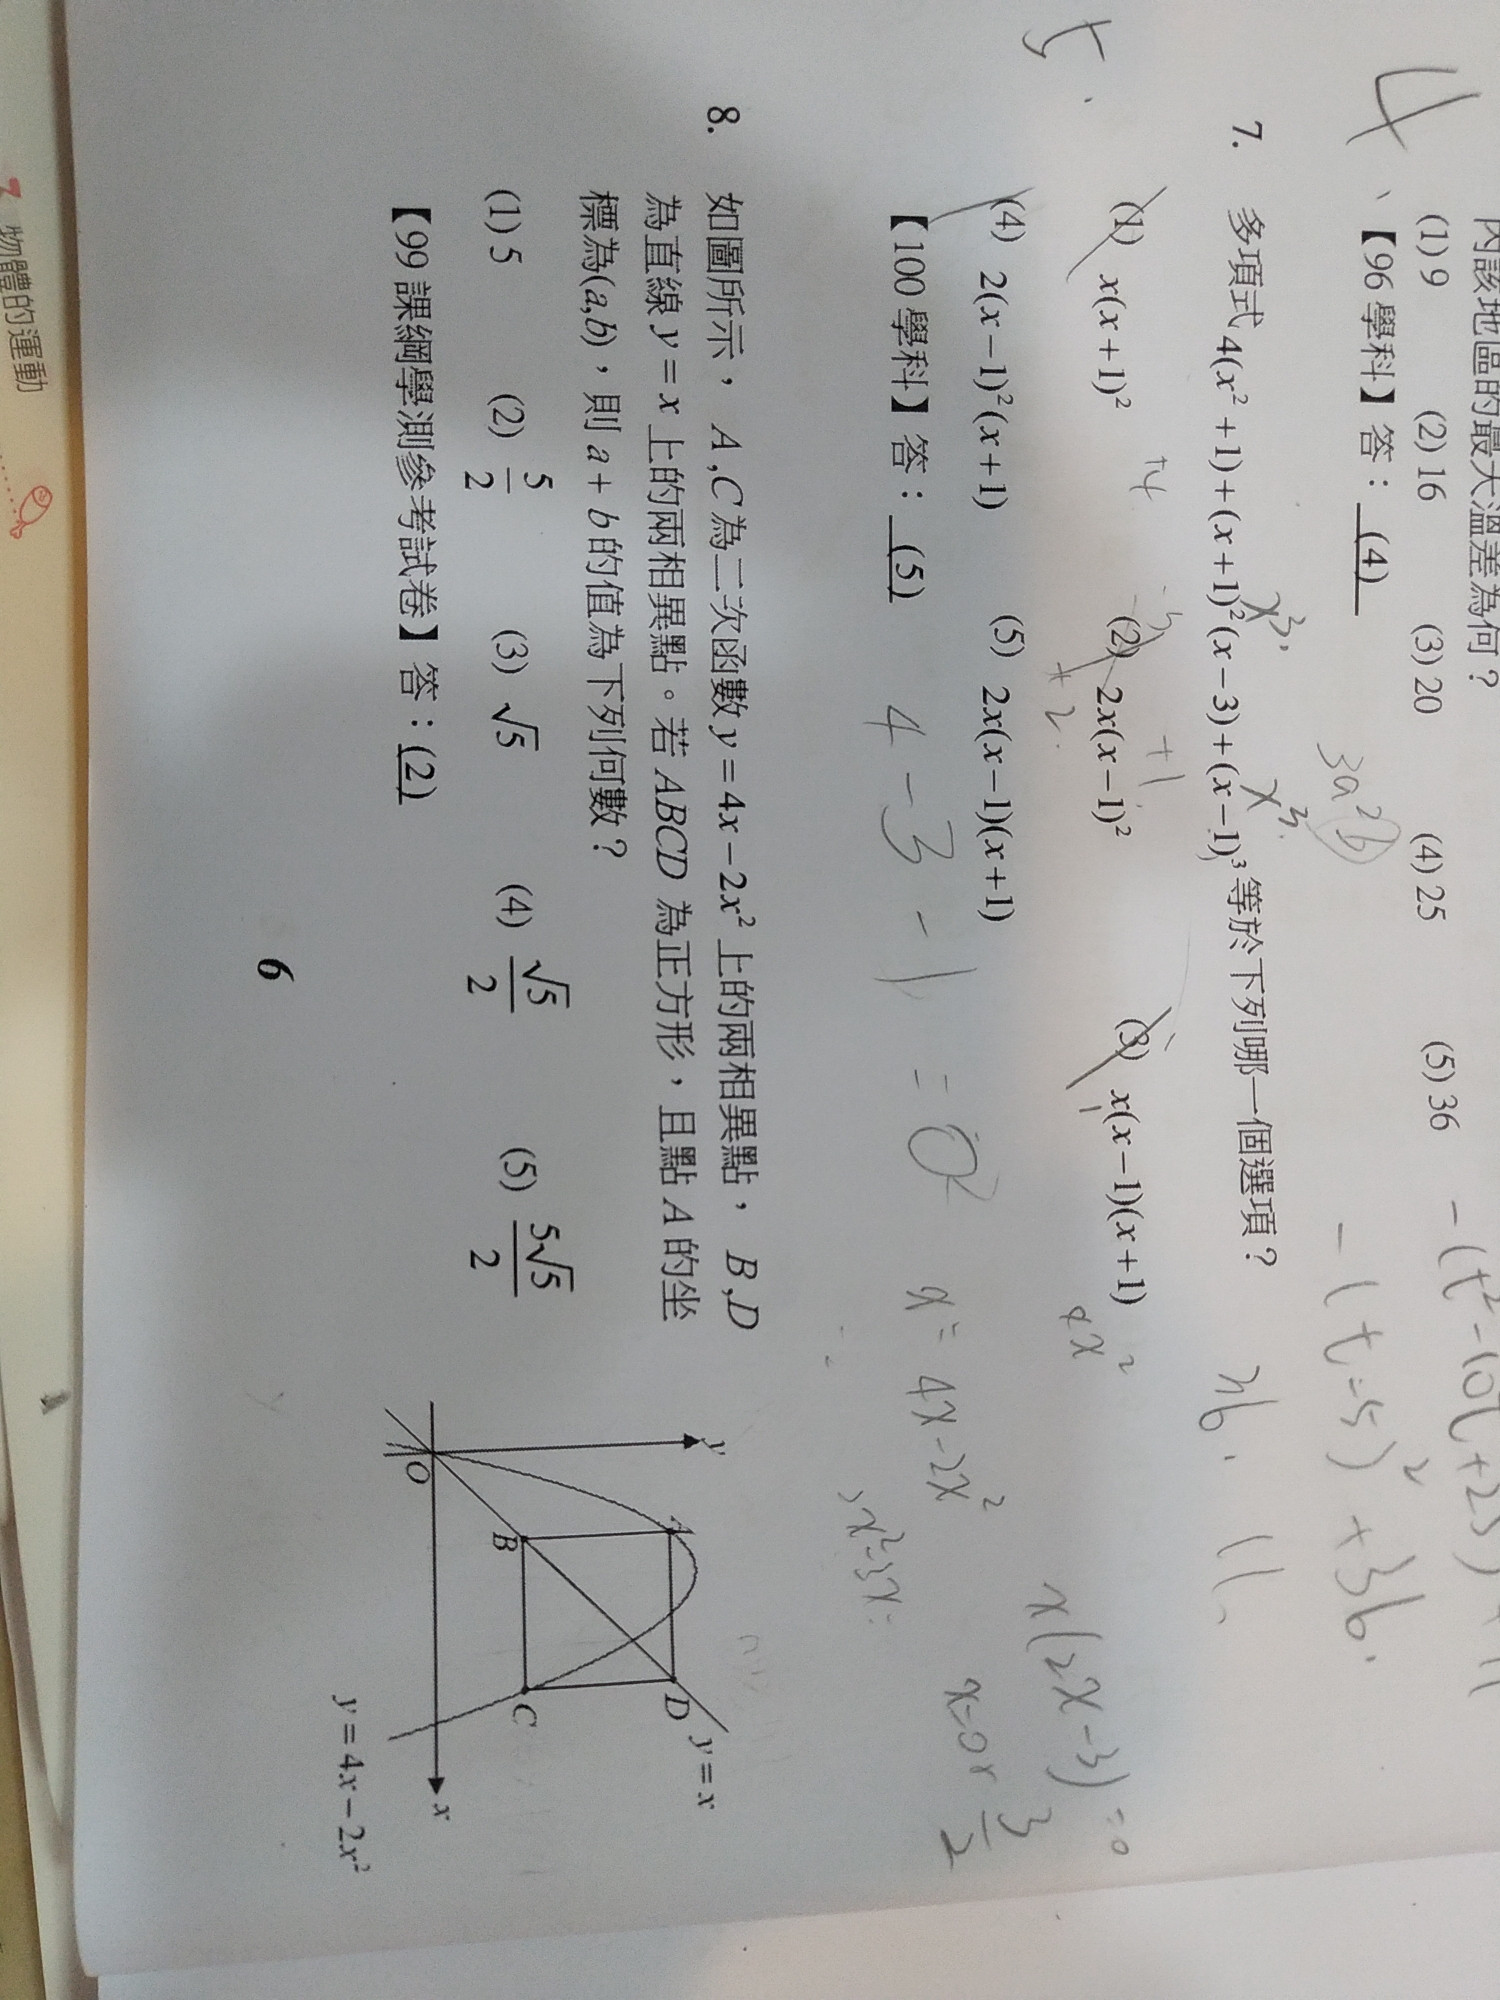 內該地區的最大溫差為何？
(1) 9 (2) 16 (3) 20 (4) 25 (5) 36
【96 學科】答：(4)
-(t²-10t+25)
3a²b
-(t-5)²+36.
4
5
36. 11.
7. 多項式 4(x²+1)+(x+1)²(x-3)+(x-1)³ 等於下列哪一個選項？
x³, x³.
+4 -3 +1
(1) x(x+1)² (2) 2x(x-1)² (3) x(x-1)(x+1)
+2. 4x²
(4) 2(x-1)²(x+1) (5) 2x(x-1)(x+1)
【100 學科】答：(5)
4-3-1=0
x=4x-2x²
x(2x-3)=0
x=0r 3/2
2x²-3x=
8. 如圖所示，A,C 為二次函數 y=4x-2x² 上的兩相異點，B,D
為直線 y=x 上的兩相異點。若 ABCD 為正方形，且點 A 的坐
標為(a,b)，則 a+b 的值為下列何數？
(1) 5 (2) 5/2 (3) √5 (4) √5/2 (5) 5√5/2
【99 課綱學測參考試卷】答：(2)
y
A
D
y=x
B
C
O
x
y=4x-2x²
6
物體的運動